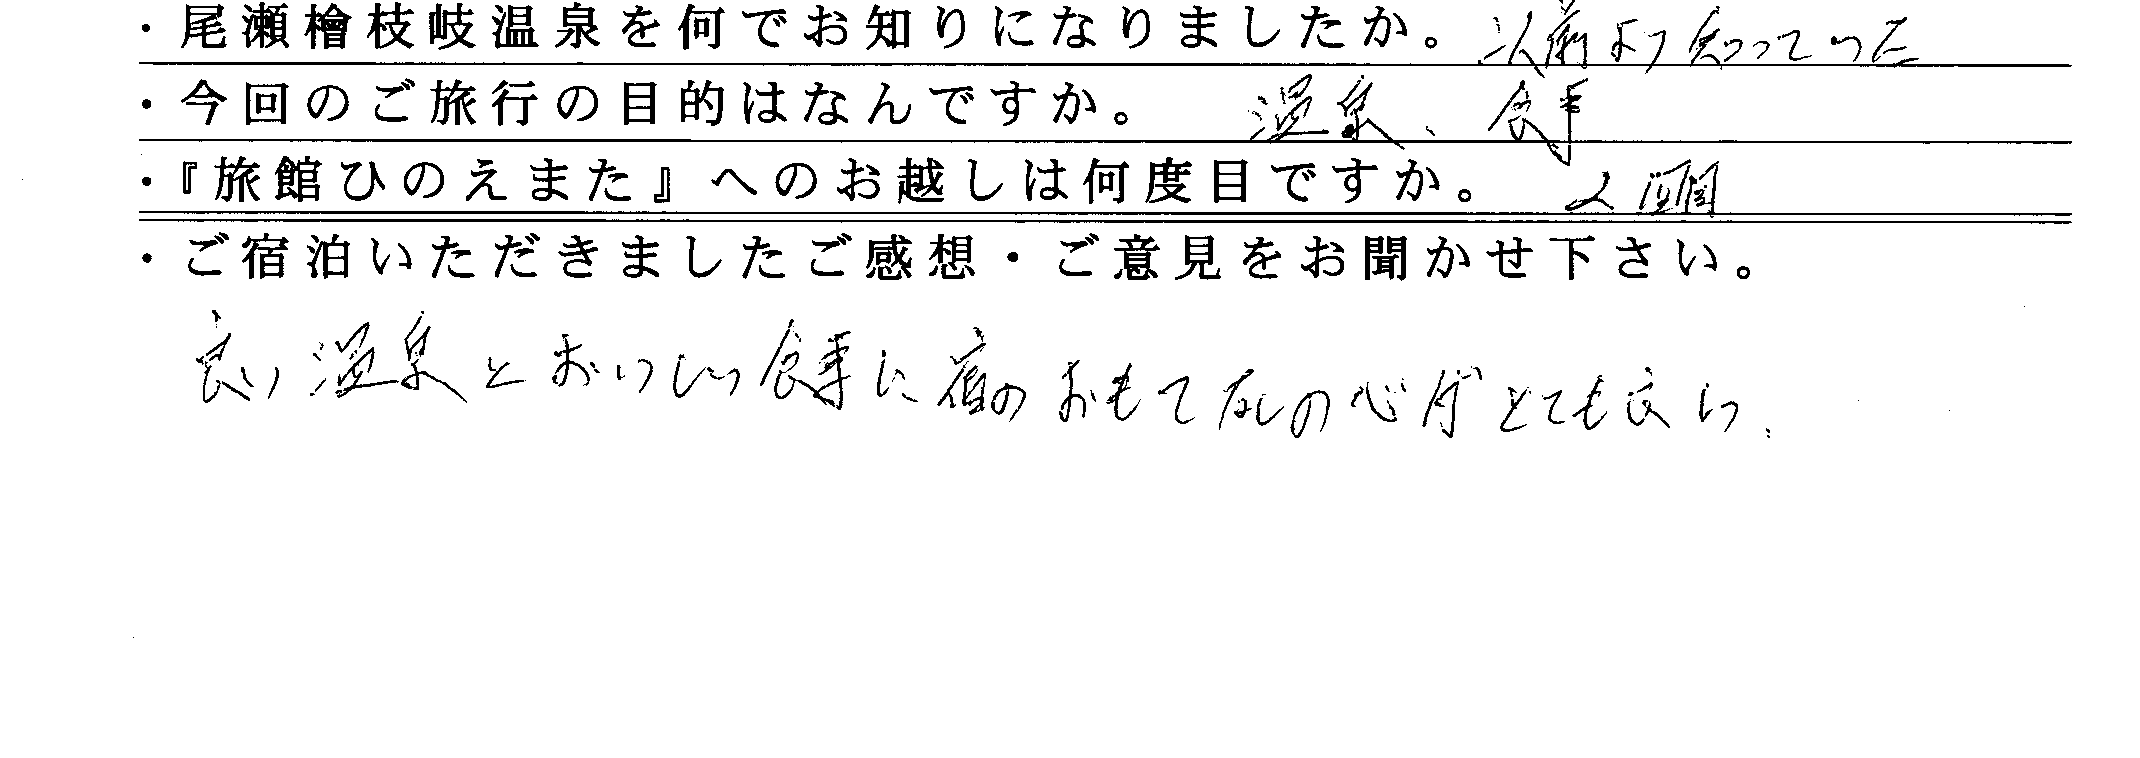 ・尾瀬檜枝岐温泉を何でお知りになりましたか。 以前より知っていた
・今回のご旅行の目的はなんですか。 温泉、食事
・『旅館ひのえまた』へのお越しは何度目ですか。 2
・ご宿泊いただきましたご感想・ご意見をお聞かせ下さい。
良い温泉とおいしい食事に宿のおもてなしの心がとても良い。